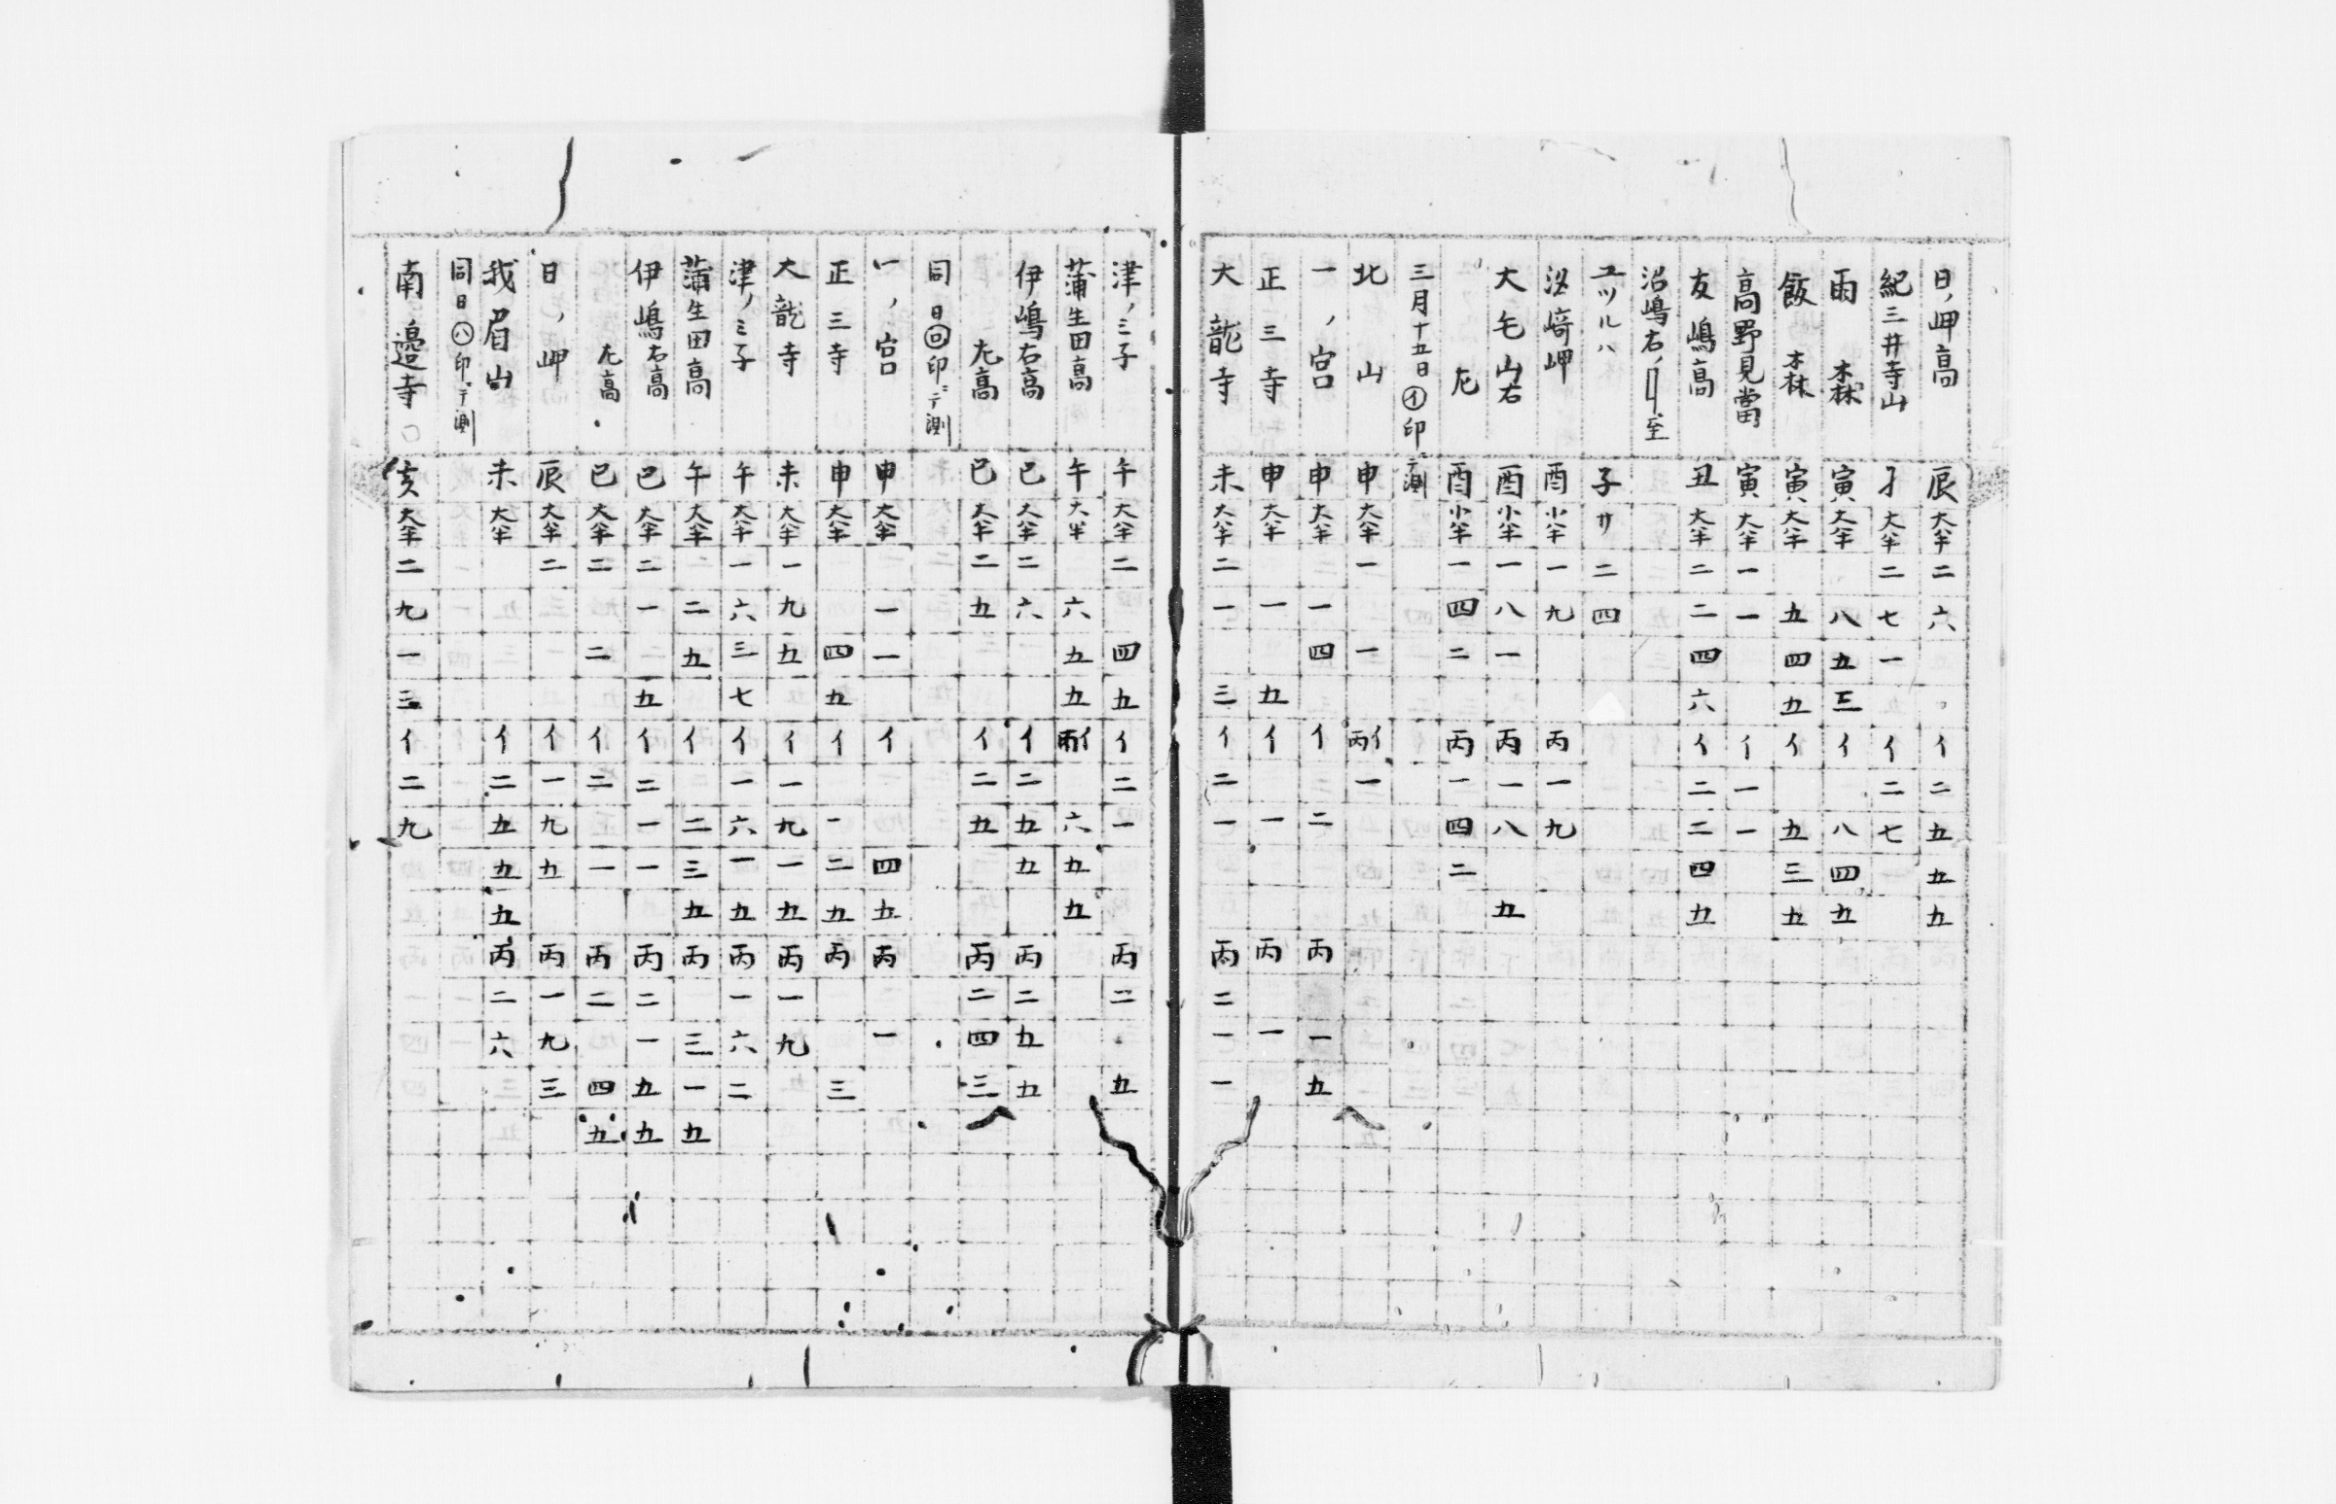 日ノ岬高 辰 大半 二六 イ 二五五五
紀三井寺山 大半 二七一 イ 二七
雨森 寅 大半 八五三 イ 八四五
飯森 寅 大半 五四五 イ 五三五
高野見當 寅 大半 一一 イ 一一
友嶋高 丑 大半 二二四六 イ 二二四五
沼嶋右ノ 至
ユツルハ 子 廿 二四
崎岬 酉 小半 一九 丙 一九
大毛山右 酉 小半 一八一 丙 一八 五
左 酉 小半 一四二 丙 一四二
三月十五日㋑印ニテ測
北山 申 大半 一 一 イ丙 一
一ノ宮 申 大半 一四 イ 二 丙 一五
正三寺 申 大半 一 五 イ 一 丙 一
大龍寺 未 大半 二一 三 イ 二一 丙 二一一
津ノミ子 午 大半 二 四五 イ 二一 丙 二 五
蒲生田高 午 大半 六五五 丙イ 六五五
伊嶋右高 巳 大半 二六 イ 二五五 丙 二五五
左高 巳 大半 二五 イ 二五 丙 二四三
同日㋺印ニテ測
一ノ宮 申 大半 一一 イ 四五 丙 一
正三寺 申 大半 四五 イ 一二五 丙 三
大龍寺 未 大半 一九五 イ 一九一五 丙 一九
津ノミ子 午 大半 一六三七 イ 一六一五 丙 一六二
蒲生田高 午 大半 二五 イ 二三五 丙 三一五
伊嶋右高 巳 大半 二一 五 イ 二一一 丙 二一五五
左高 巳 大半 二 二 イ 二 一 丙 二 四五
日ノ岬 辰 大半 二 イ 一九五 丙 一九三
我眉山 未 大半 イ 二五五五 丙 二六
同日㋩印ニテ測
南邉寺 亥 大半 二九一三 イ 二九